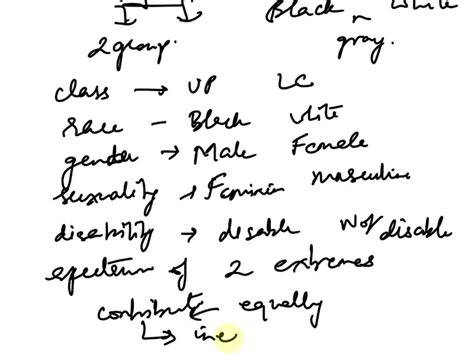 Black White
2 group. gray.
class → UP LC
race - Black white
gender → Male Female
sexuality → Feminin masculine
disability → disable Not disable
spectrum of 2 extremes
contribute equally
↳ ine